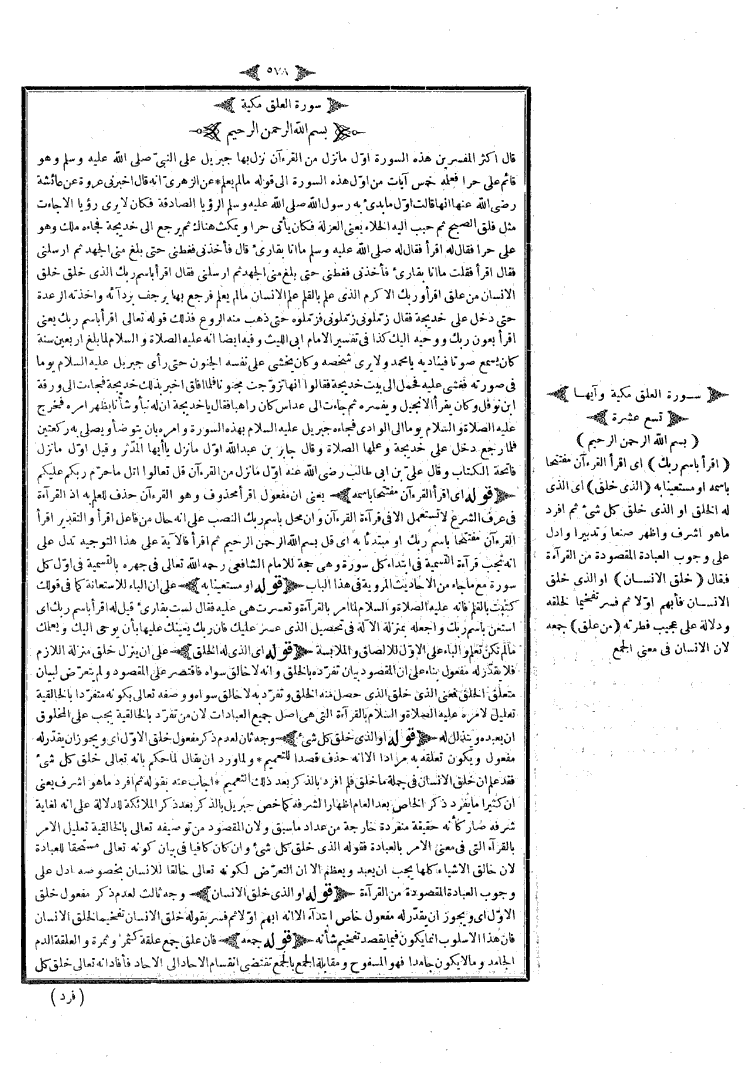 ٥٧٨
سورة العلق مكية
بسم الله الرحمن الرحيم
قال اكثر المفسرين هذه السورة اوّل مانزل من القرءآن نزل بها جبريل على النبىّ صلى الله عليه وسلم وهو
قائم على حرا فعلمه خمس آيات من اول هذه السورة الى قوله مالم يعلم * عن الزهرىّ انه قال اخبرنى عروة عن عائشة
رضى الله عنها انها قالت اول مابدئ به رسول الله صلى الله عليه وسلم الرؤيا الصادقة فكان لايرى رؤيا الاجاءت
مثل فلق الصبح ثم حبب اليه الخلاء يعنى العزلة فكان يأتى حرا ويمكث هناك ثم يرجع الى خديجة فجاءه ملك وهو
على حرا فقال له اقرأ فقال له صلى الله عليه وسلم ماانا بقارئ قال فأخذنى فغطنى حتى بلغ منى الجهد ثم ارسلنى
فقال اقرأ فقلت ماانا بقارئ فأخذنى فغطنى حتى بلغ منى الجهد ثم ارسلنى فقال اقرأ باسم ربك الذى خلق خلق
الانسان من علق اقرأ وربك الاكرم الذى علم بالقلم علم الانسان مالم يعلم فرجع بها يرجف بردآئه واخذته ارعدة
حتى دخل على خديجة فقال زملونى زملونى فزملوه حتى ذهب منه الروع فذلك قوله تعالى اقرأ باسم ربك يعنى
اقرأ بعون ربك ووحيه اليك كذا فى تفسير الامام ابى الليث وفيه ايضا انه عليه الصلاة والسلام لما بلغ اربعين سنة
كان يسمع صوتا فيناديه يامحمد ولايرى شخصه وكان يخشى على نفسه الجنون حتى رأى جبريل عليه السلام يوما
فى صورته فغشى عليه فحمل الى بيت خديجة فقالوا لها تزوجت مجنونا فلما افاق اخبر بذلك خديجة فجاءت الى ورقة
ابن نوفل وكان يقرأ الانجيل ويفسره ثم جاءت الى عداس كان راهبا فقال ياخديجة ان له نبأ وشأنا يظهر امره فخرج
عليه الصلاة والسلام يوما الى الوادى فجاءه جبريل عليه السلام بهذه السورة وامره بان يتوضأ ويصلى به ركعتين
فلما رجع دخل على خديجة وعلمها الصلاة وقال جابر بن عبدالله اول مانزل ياأيها المدّثر وقيل اول مانزل
فاتحة الكتاب وقال علىّ بن ابى طالب رضى الله عنه اول مانزل من القرءآن قل تعالوا اتل ماحرّم ربكم عليكم
قوله اى اقرأ القرءآن مفتتحا باسمه يعنى ان مفعول اقرأ محذوف وهو القرءآن حذف للعلم به اذ القرآءة
فى عرف الشرع لاتستعمل الافى قرآءة القرءآن وان محل باسم ربك النصب على انه حال من فاعل اقرأ والتقدير اقرأ
القرءآن مفتتحا باسم ربك او مبتدئا به اى قل بسم الله الرحمن الرحيم ثم اقرأ فالآية على هذا التوجيه تدل على
انه تجب قرآءة التسمية فى ابتداء كل سورة وهى حجة للامام الشافعى رحمه الله تعالى فى جهره بالتسمية فى اول كل
سورة مع ماجاء من الاحاديث المروية فى هذا الباب قوله او مستعينا به على ان الباء للاستعانة كما فى قولك
كتبت بالقلم فانه عليه الصلاة والسلام لما امر بالقرآءة وتعسرت هى عليه فقال لست بقارئ قيل له اقرأ باسم ربك اى
استعن باسم ربك واجعله بمنزلة الآلة فى تحصيل الذى عسر عليك فان ربك يعينك عليها بأن يوحى اليك ويعلمك
مالم تكن تعلم والباء على الاول للالصاق والملابسة قوله اى الذى له الخلق على ان ينزل خلق منزلة اللازم
فلا يقدّر له مفعول بناء على ان المقصود بيان تفرّده بالخلق وانه لاخالق سواه فاقتصر على المقصود ولم يتعرّض لبيان
متعلق الخلق فمعنى الذى خلق الذى حصل منه الخلق وتفرّد به لاخالق سواه ووصفه تعالى بكونه متفرّدا بالخالقية
تعليل لامره عليه الصلاة والسلام بالقرآءة التى هى اصل جميع العبادات لان من تفرّد بالخالقية يجب على المخلوق
ان يعبده ويتذلل له قوله او الذى خلق كل شئ وجه ثان لعدم ذكر مفعول خلق الاول اى ويجوز ان يقدّر له
مفعول ويكون تعلقه به مرادا الاانه حذف قصدا للتعميم * ولما ورد ان يقال لما حكم بانه تعالى خلق كل شئ
فقد علم ان خلق الانسان فى جملة ماخلق فلم افرد بالذكر بعد ذلك التعميم * اجاب عنه بقوله ثم افرد ماهو اشرف يعنى
ان كثيرا مايفرد ذكر الخاص بعد العام اظهارا لشرفه كما خص جبريل بالذكر بعد ذكر الملائكة للدلالة على انه لغاية
شرفه صار كأنه حقيقة منفردة خارجة من عداد ماسبق ولان المقصود من توصيفه تعالى بالخالقية تعليل الامر
بالقرآءة التى فى معنى الامر بالعبادة فقوله الذى خلق كل شئ وان كان كافيا فى بيان كونه تعالى مستحقا للعبادة
لان خالق الاشياء كلها يجب ان يعبد ويعظم الا ان التعرّض لكونه تعالى خالقا للانسان بخصوصه ادل على
وجوب العبادة المقصودة من القرآءة قوله او الذى خلق الانسان وجه ثالث لعدم ذكر مفعول خلق
الاول اى ويجوز ان يقدّر له مفعول خاص ابتدآء الاانه ابهم اولا ثم فسر بقوله خلق الانسان تفخيما لخلق الانسان
فان هذا الاسلوب انما يكون فيما يقصد تفخيم شأنه قوله جمعه فان علق جمع علقة كثمر وثمرة والعلقة الدم
الجامد ومالايكون جامدا فهو المسفوح ومقابلة الجمع بالجمع تقتضى انقسام الآحاد الى الآحاد فأفاد انه تعالى خلق كل
(فرد)
سورة العلق مكية وآيها
تسع عشرة
(بسم الله الرحمن الرحيم)
(اقرأ باسم ربك) اى اقرأ القرءآن مفتتحا
باسمه او مستعينا به (الذى خلق) اى الذى
له الخلق او الذى خلق كل شئ ثم افرد
ماهو اشرف واظهر صنعا وتدبيرا وادل
على وجوب العبادة المقصودة من القرآءة
فقال (خلق الانسان) او الذى خلق
الانسان فأبهم اولا ثم فسر تفخيما لخلقه
ودلالة على عجيب فطرته (من علق) جمعه
لان الانسان فى معنى الجمع